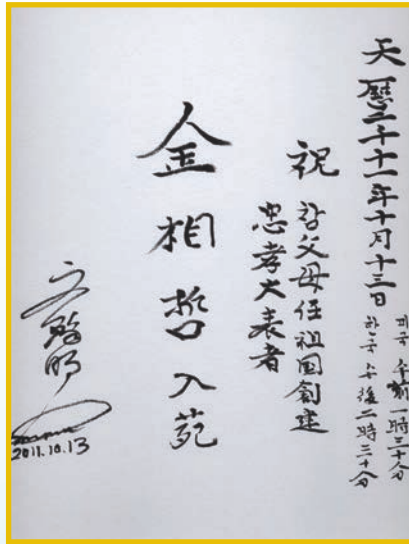 天曆二千十一年十月十三日
미국 午前一時三十分
한국 午後二時三十分
祝 참父母任祖国創建
忠孝大表者
金相哲入苑
文鮮明
2011.10.13